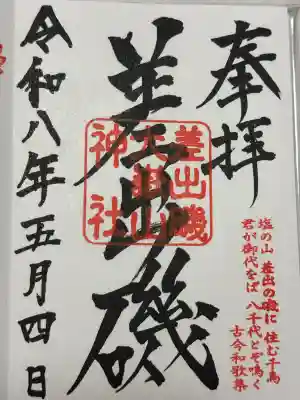 奉拝
差出磯
差出磯
大嶽山
神社
塩の山 差出の磯に 住む千鳥
君が御代をば 八千代とぞ鳴く
古今和歌集
令和八年五月四日